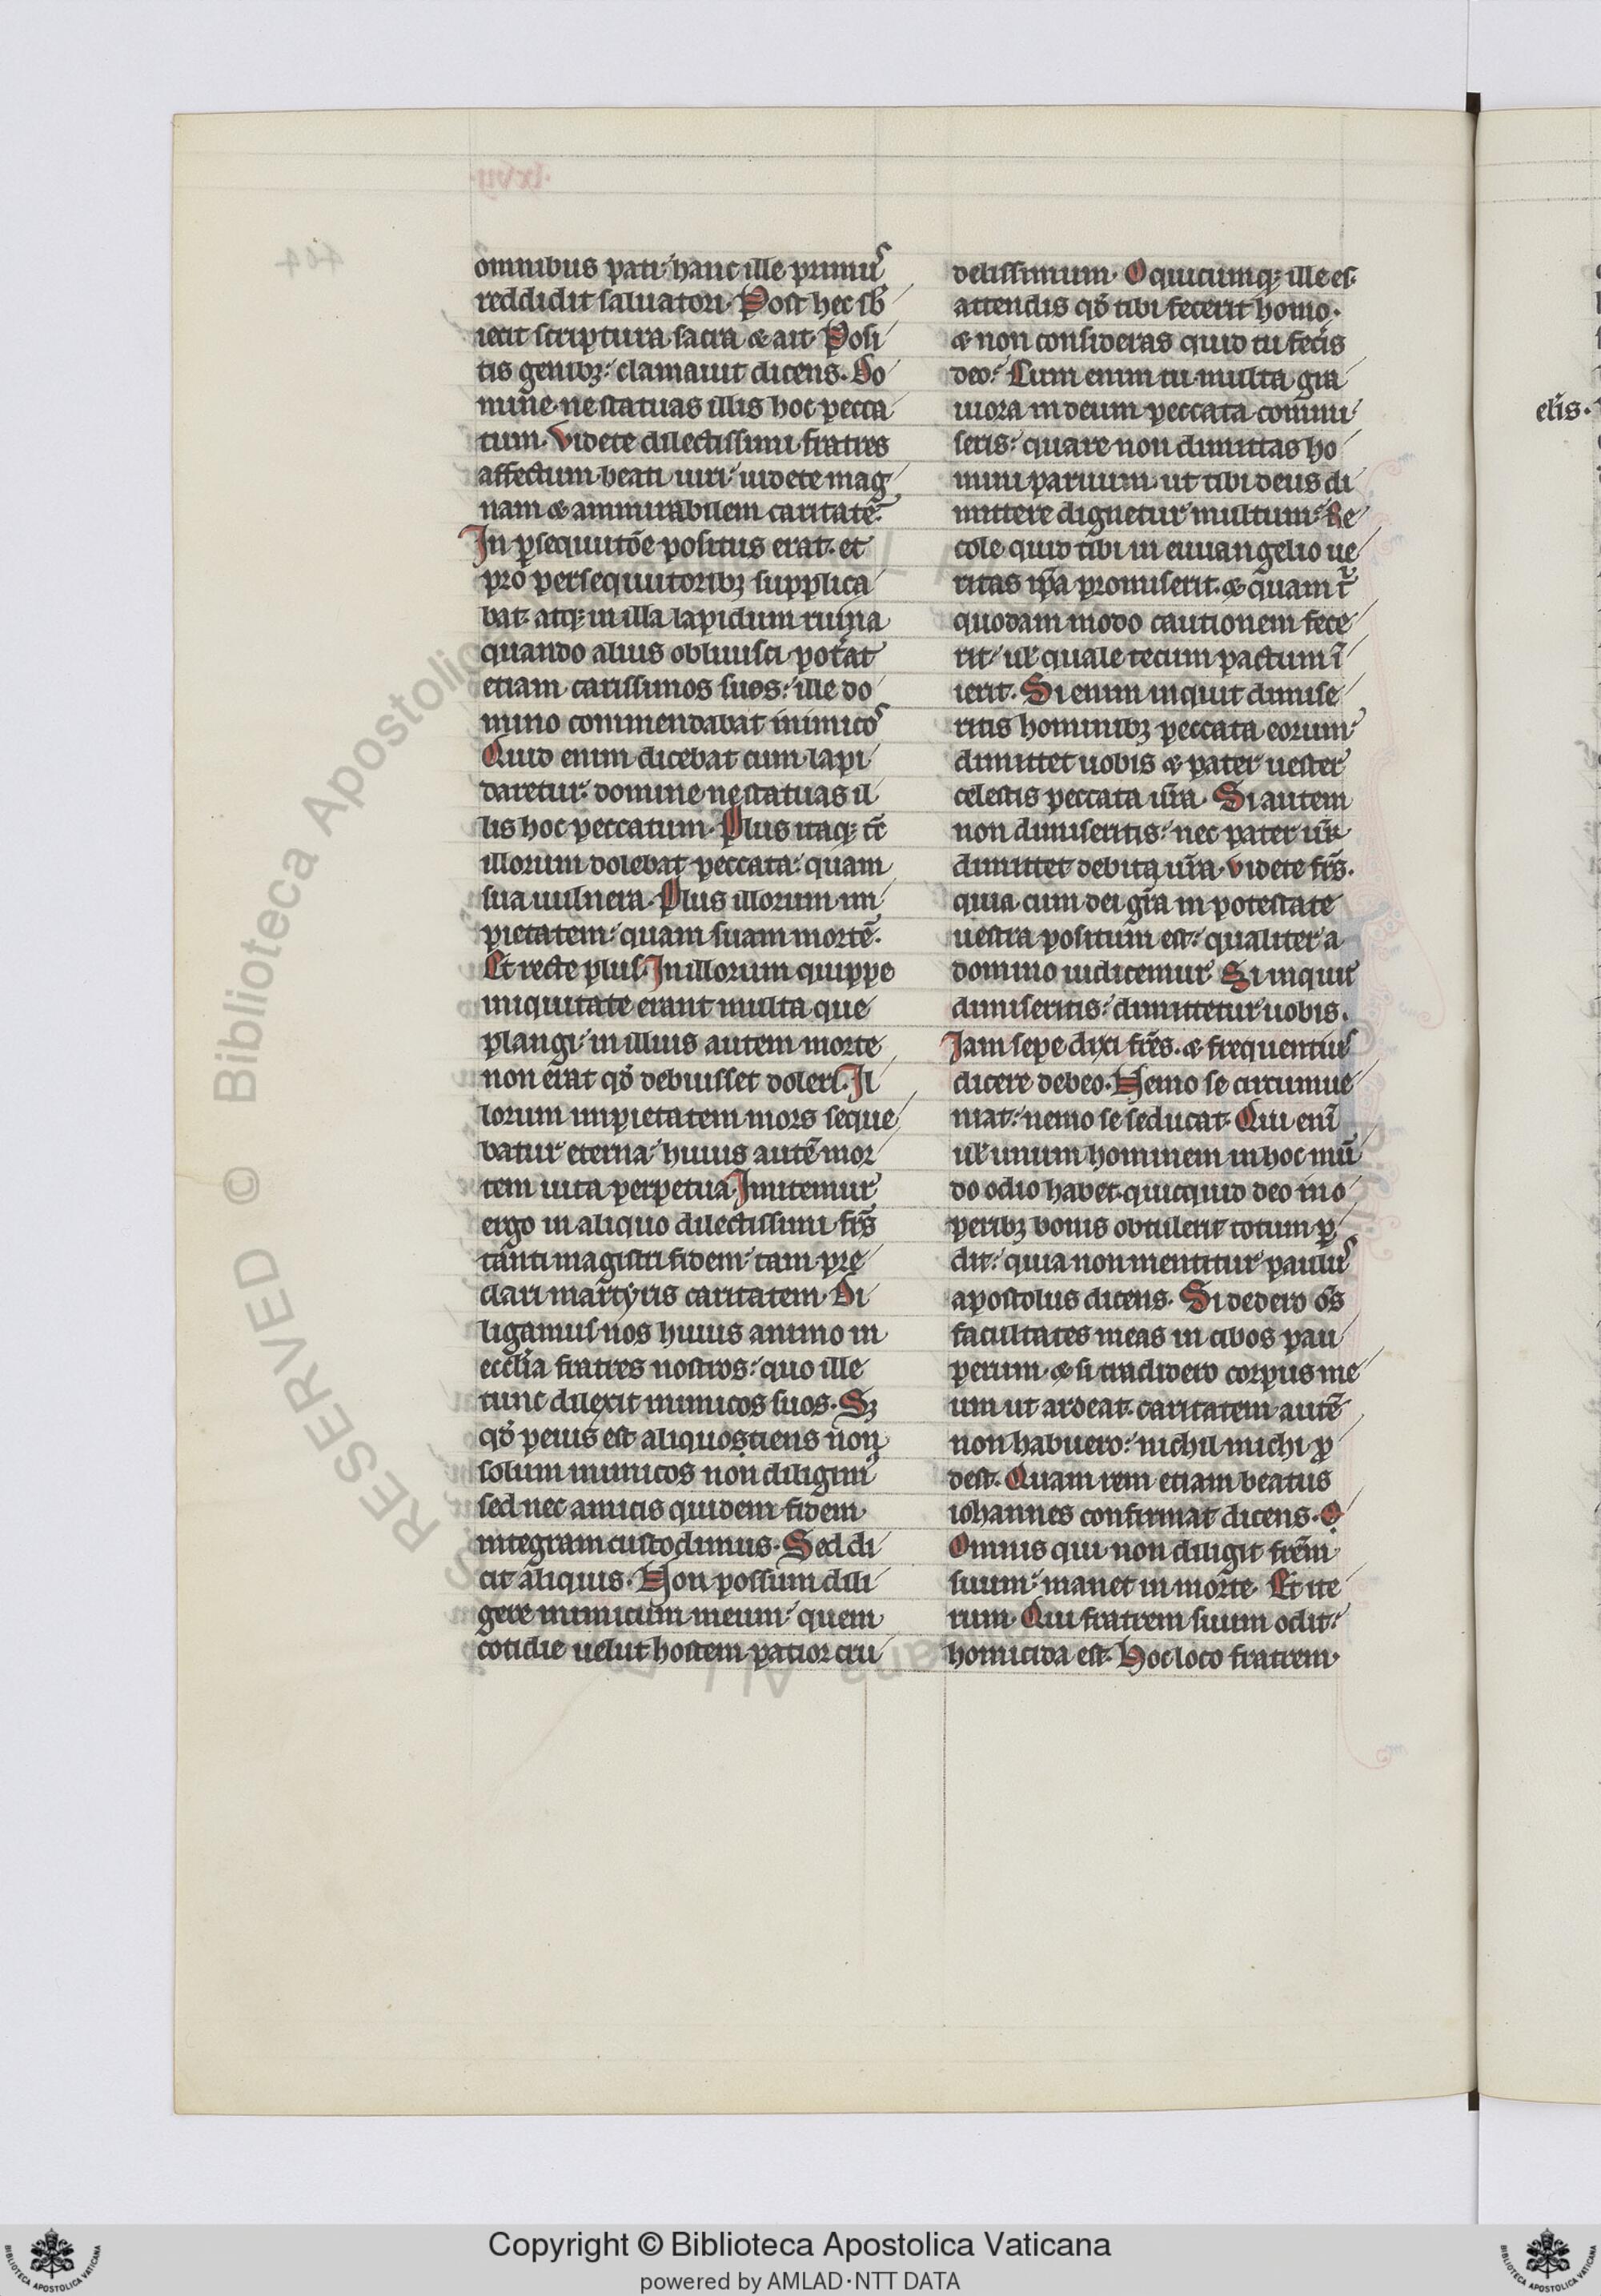 omnibus pati: hanc ille primus
reddidit saluatori. Post hec sb
iecit scriptura sacra & ait. Posi
tis genibꝫ: clamauit dicens. Do
mine ne statuas illis hoc pecca
tum. Videte dilectissimi fratres
affectum beati uiri: uidete mag
nam & ammirabilem caritatē.
In ꝑsequutōe positus erat. et
pro persequutoribꝫ supplica
bat. atqꝫ in illa lapidum ruina
quando alius obliuisci pot̾at
etiam carissimos suos: ille do
mino commendabat inimicos
Quid enim dicebat cum lapi
daretur: domine ne statuas il
lis hoc peccatum. Plus itaqꝫ tc̄
illorum dolebat peccata: quam
sua uulnera. Plus illorum im
pietatem: quam suam mortē.
Et recte plus. In illorum quippe
iniquitate erant multa que
plangi: in illius autem morte
non erat qd̾ debuisset doleri. Il
lorum impietatem mors seque
batur eterna: huius autē mor
tem uita perpetua. Imitemur
ergo in aliquo dilectissimi frs̄
tanti magistri fidem: tam pre
clari martyris caritatem. Di
ligamus nos huius animo in
eccl̄ia fratres nostros: quo ille
tunc dilexit inimicos suos. Sꝫ
qd̾ peius est aliquosciens non
solum inimicos non diligimꝰ
sed nec amicis quidem fidem
integram custodimus. Sed di
cit aliquis. Non possum dili
gere inimicum meum: quem
cotidie uelut hostem patior cru
delissimum. O quicumqꝫ ille es.
attendis qd̾ tibi fecerit homo.
& non consideras quid tu fecis
deo: Cum enim tu multa gra
uiora in deum peccata commi
seris: quare non dimittas ho
mini paruum. ut tibi deus di
mittere dignetur multum: Re
cole quid tibi in euuangelio ue
ritas ip̄a promiserit. & quam t̾
quodam modo cautionem fece
rit. ul̾ quale tecum pactum ī
ierit. Si enim inquit dimise
ritis hominibꝫ peccata eorum
dimittet uobis & pater uester
celestis peccata ur̄a. Si autem
non dimiseritis: nec pater ur̄
dimittet debita ur̄a. Videte frs̄.
quia cum dei gr̄a in potestate
uestra positum est: qualiter a
domino iudicemur. Si inquit
dimiseritis: dimittetur uobis.
Iam sepe dixi frēs. & frequentius
dicere debeo. Nemo se circumue
niat: nemo se seducat. Qui enī
ul̾ unum hominem in hoc mū
do odio habet. quicquid deo in o
peribꝫ bonis obtulerit totum ꝑ
dit: quia non mentitur paulus
apostolus dicens. Si dedero os̄
facultates meas in cibos pau
perum. & si tradidero corpus me
um ut ardeat. caritatem autē
non habuero: nichil michi ꝓ
dest. Quam rem etiam beatus
iohannes confirmat dicens. O
Omnis qui non diligit frēm
suum: manet in morte. Et ite
rum. Qui fratrem suum odit:
homicida est. Hoc loco fratrem
elis.
RESERVED © Biblioteca Apostolica
Copyright © Biblioteca Apostolica Vaticana
powered by AMLAD·NTT DATA